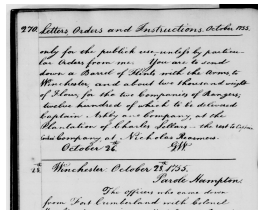 270. Letters, Orders and Instructions. October 1755.
only for the publick use, unless by particu-
lar Orders from me. You are to send
down a Barrel of Flints with the Arms, to
Winchester, and about two thousand weight
of Flour, for the two Companies of Rangers;
twelve hundred of which to be delivered
Captain Ashby and Company, at the
Plantation of Charles Sellars - the rest to Captain
Cocks Company at Nicholas Reasmers.
October 28. GW
28. Winchester: October 28th, 1755.
Parole Hampton.
The officers who came down
from Fort Cumberland with Colonel